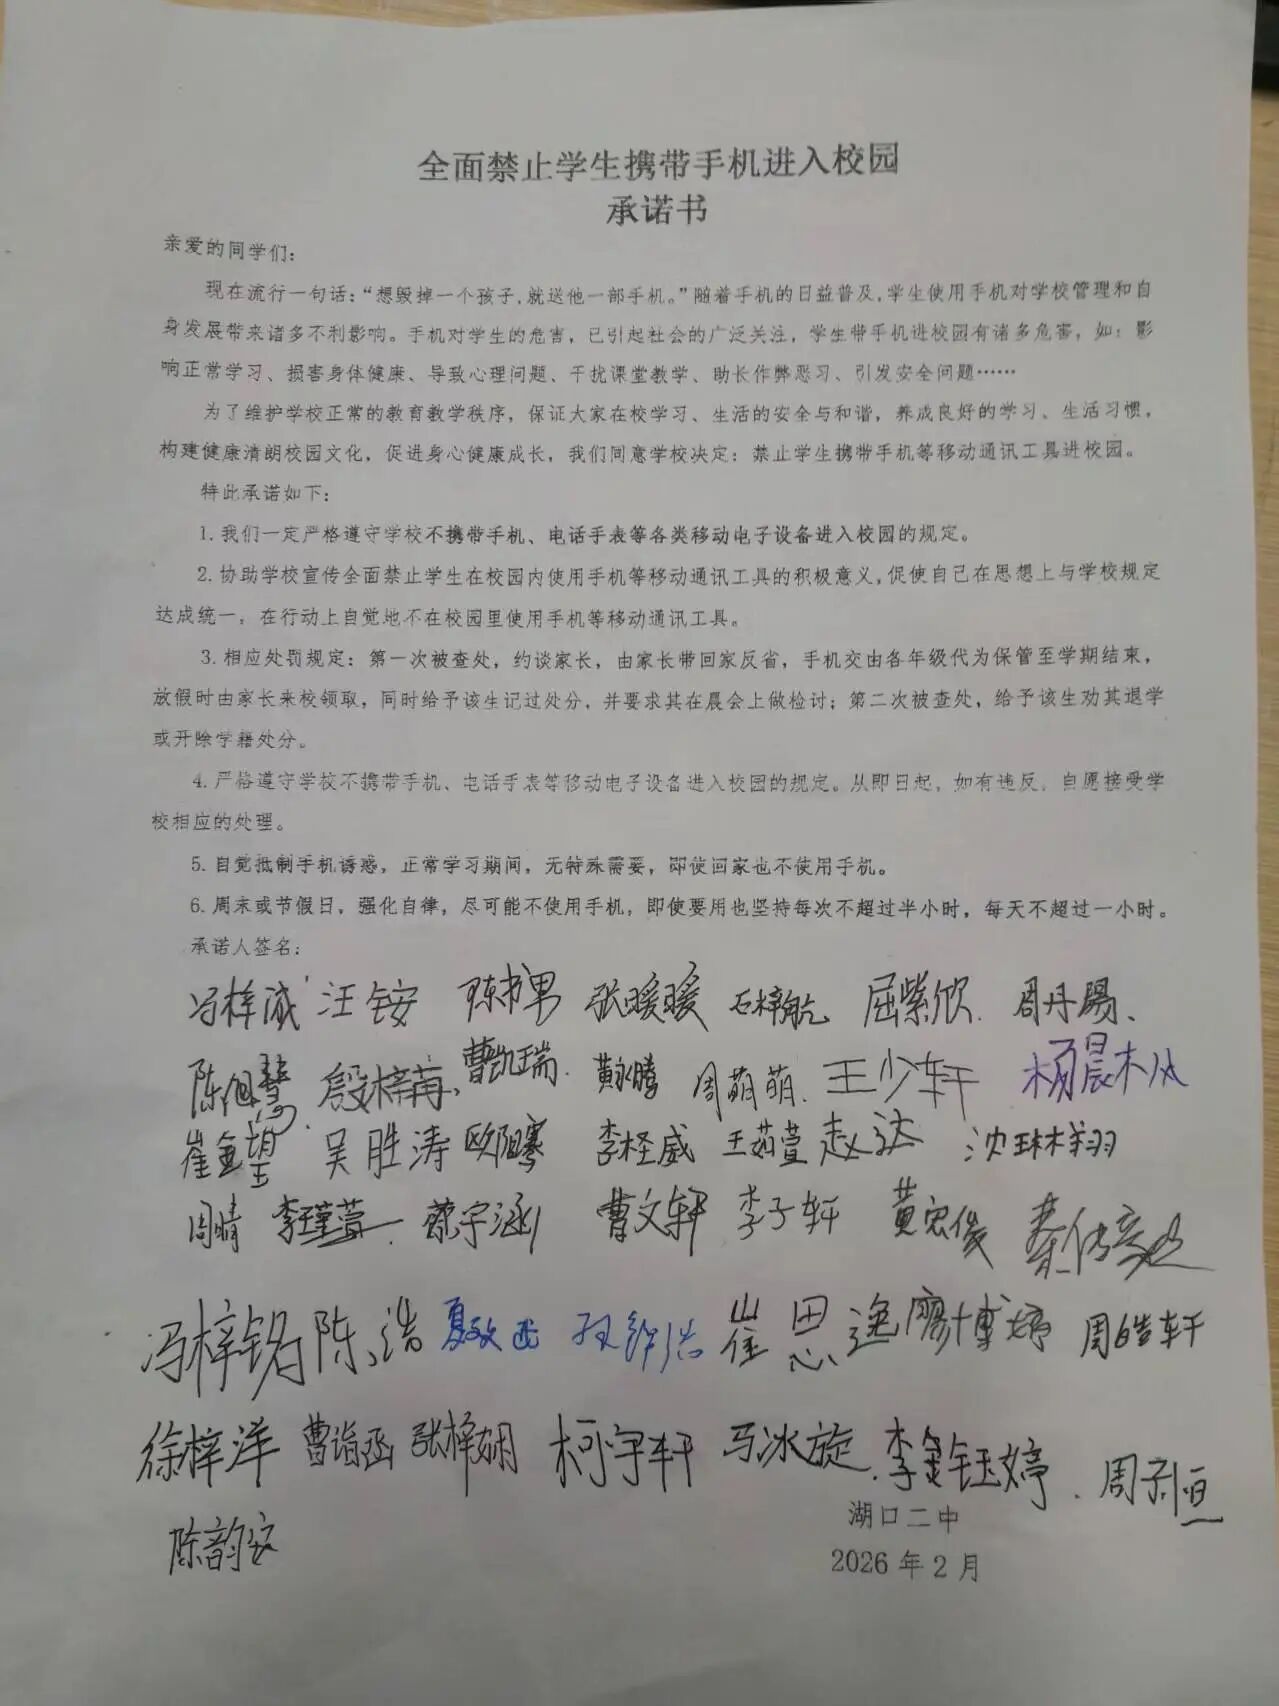 全面禁止学生携带手机进入校园
承诺书
亲爱的同学们：
现在流行一句话：“想毁掉一个孩子，就送他一部手机。”随着手机的日益普及，学生使用手机对学校管理和自
身发展带来诸多不利影响。手机对学生的危害，已引起社会的广泛关注，学生带手机进校园有诸多危害，如：影
响正常学习、损害身体健康、导致心理问题、干扰课堂教学、助长作弊恶习、引发安全问题……
为了维护学校正常的教育教学秩序，保证大家在校学习、生活的安全与和谐，养成良好的学习、生活习惯，
构建健康清朗校园文化，促进身心健康成长，我们同意学校决定：禁止学生携带手机等移动通讯工具进校园。
特此承诺如下：
1.我们一定严格遵守学校不携带手机、电话手表等各类移动电子设备进入校园的规定。
2.协助学校宣传全面禁止学生在校园内使用手机等移动通讯工具的积极意义，促使自己在思想上与学校规定
达成统一，在行动上自觉地不在校园里使用手机等移动通讯工具。
3.相应处罚规定：第一次被查处，约谈家长，由家长带回家反省，手机交由各年级代为保管至学期结束，
放假时由家长来校领取，同时给予该生记过处分，并要求其在晨会上做检讨；第二次被查处，给予该生劝其退学
或开除学籍处分。
4.严格遵守学校不携带手机、电话手表等移动电子设备进入校园的规定。从即日起，如有违反，自愿接受学
校相应的处理。
5.自觉抵制手机诱惑，正常学习期间，无特殊需要，即使回家也不使用手机。
6.周末或节假日，强化自律，尽可能不使用手机，即使要用也坚持每次不超过半小时，每天不超过一小时。
承诺人签名：
冯梓诚 汪铵 张暖暖 石梓航 屈紫欣 周丹阳
陈旭慧 曹凯瑞 黄永腾 周萌萌 王少轩 杨晨木风
崔金望 吴胜涛 欧阳骞 李柽威 王茹萱 赵达 沈琳翔
周晴 李瑾萱 蔡宇涵 曹文轩 李子轩 黄宏俊
冯梓铭 陈浩 崔思逸 廖博婷 周皓轩
徐梓洋 曹诣函 张梓娴 柯宇轩 马冰旋 李鑫钰婷
湖口二中
陈韵
2026年2月